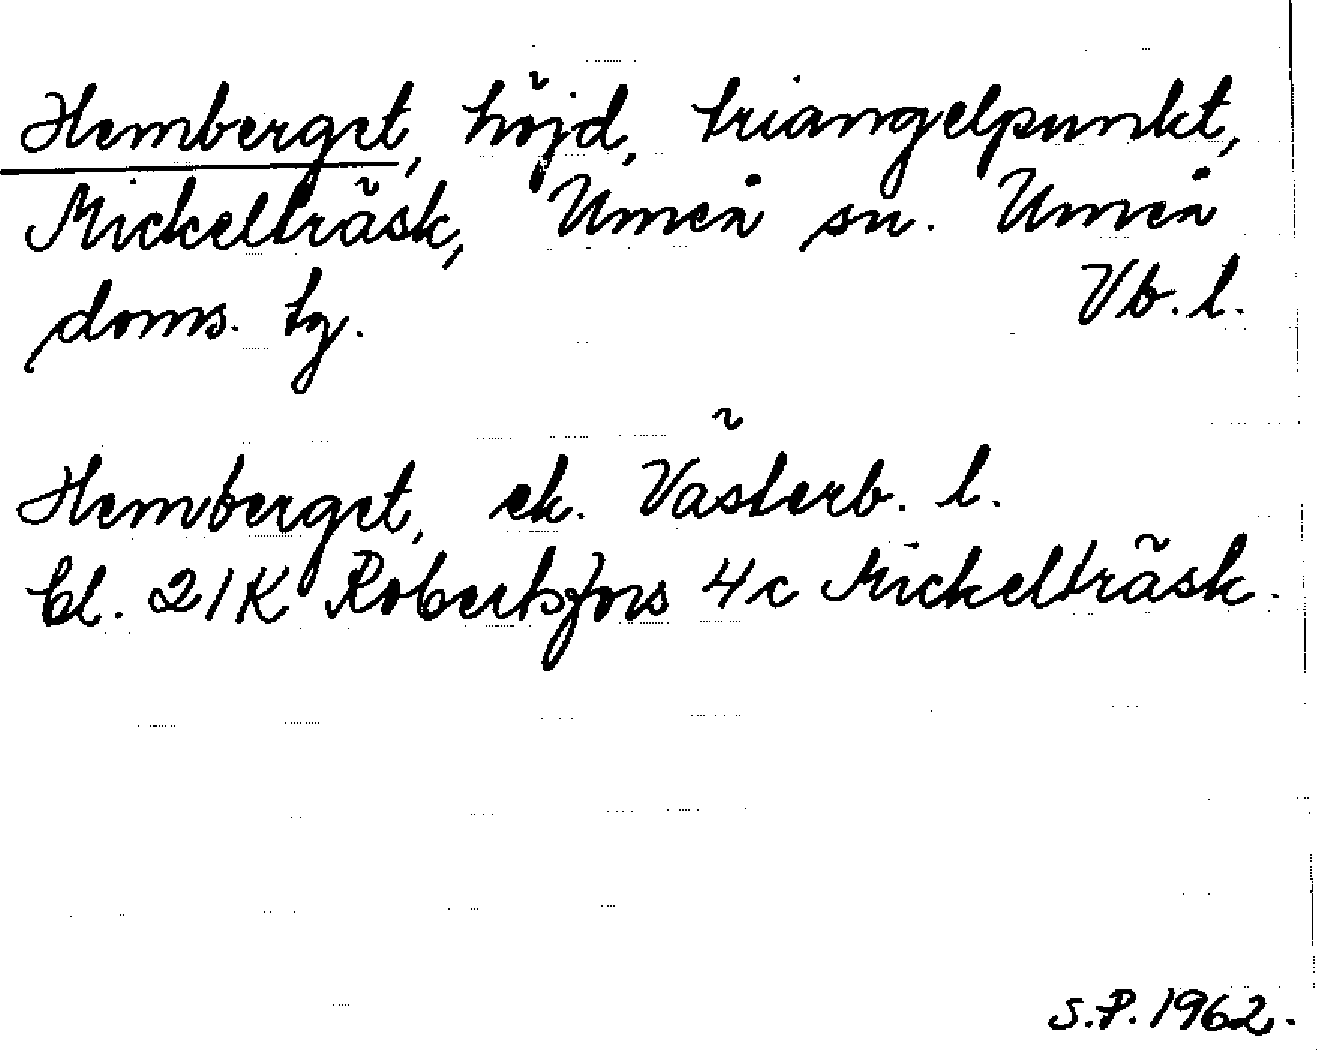 Hemberget, höjd, triangelpunkt,
Mickelträsk, Umeå sn. Umeå
doms. tg. Vb. l.
Hemberget, ek. Västerb. l.
bl. 21K Robertsfors 4c Mickelträsk.
S.P. 1962.